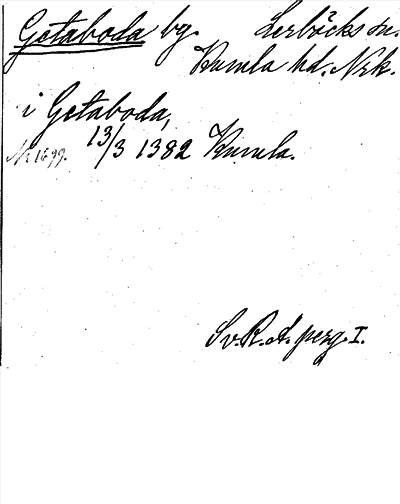 Getaboda by. Lerbäcks sn.
Kumla hd. Nrk.
i Getaboda,
Nr 1699. 13/3 1382 Kumla.
Sv. R. A. perg. I.